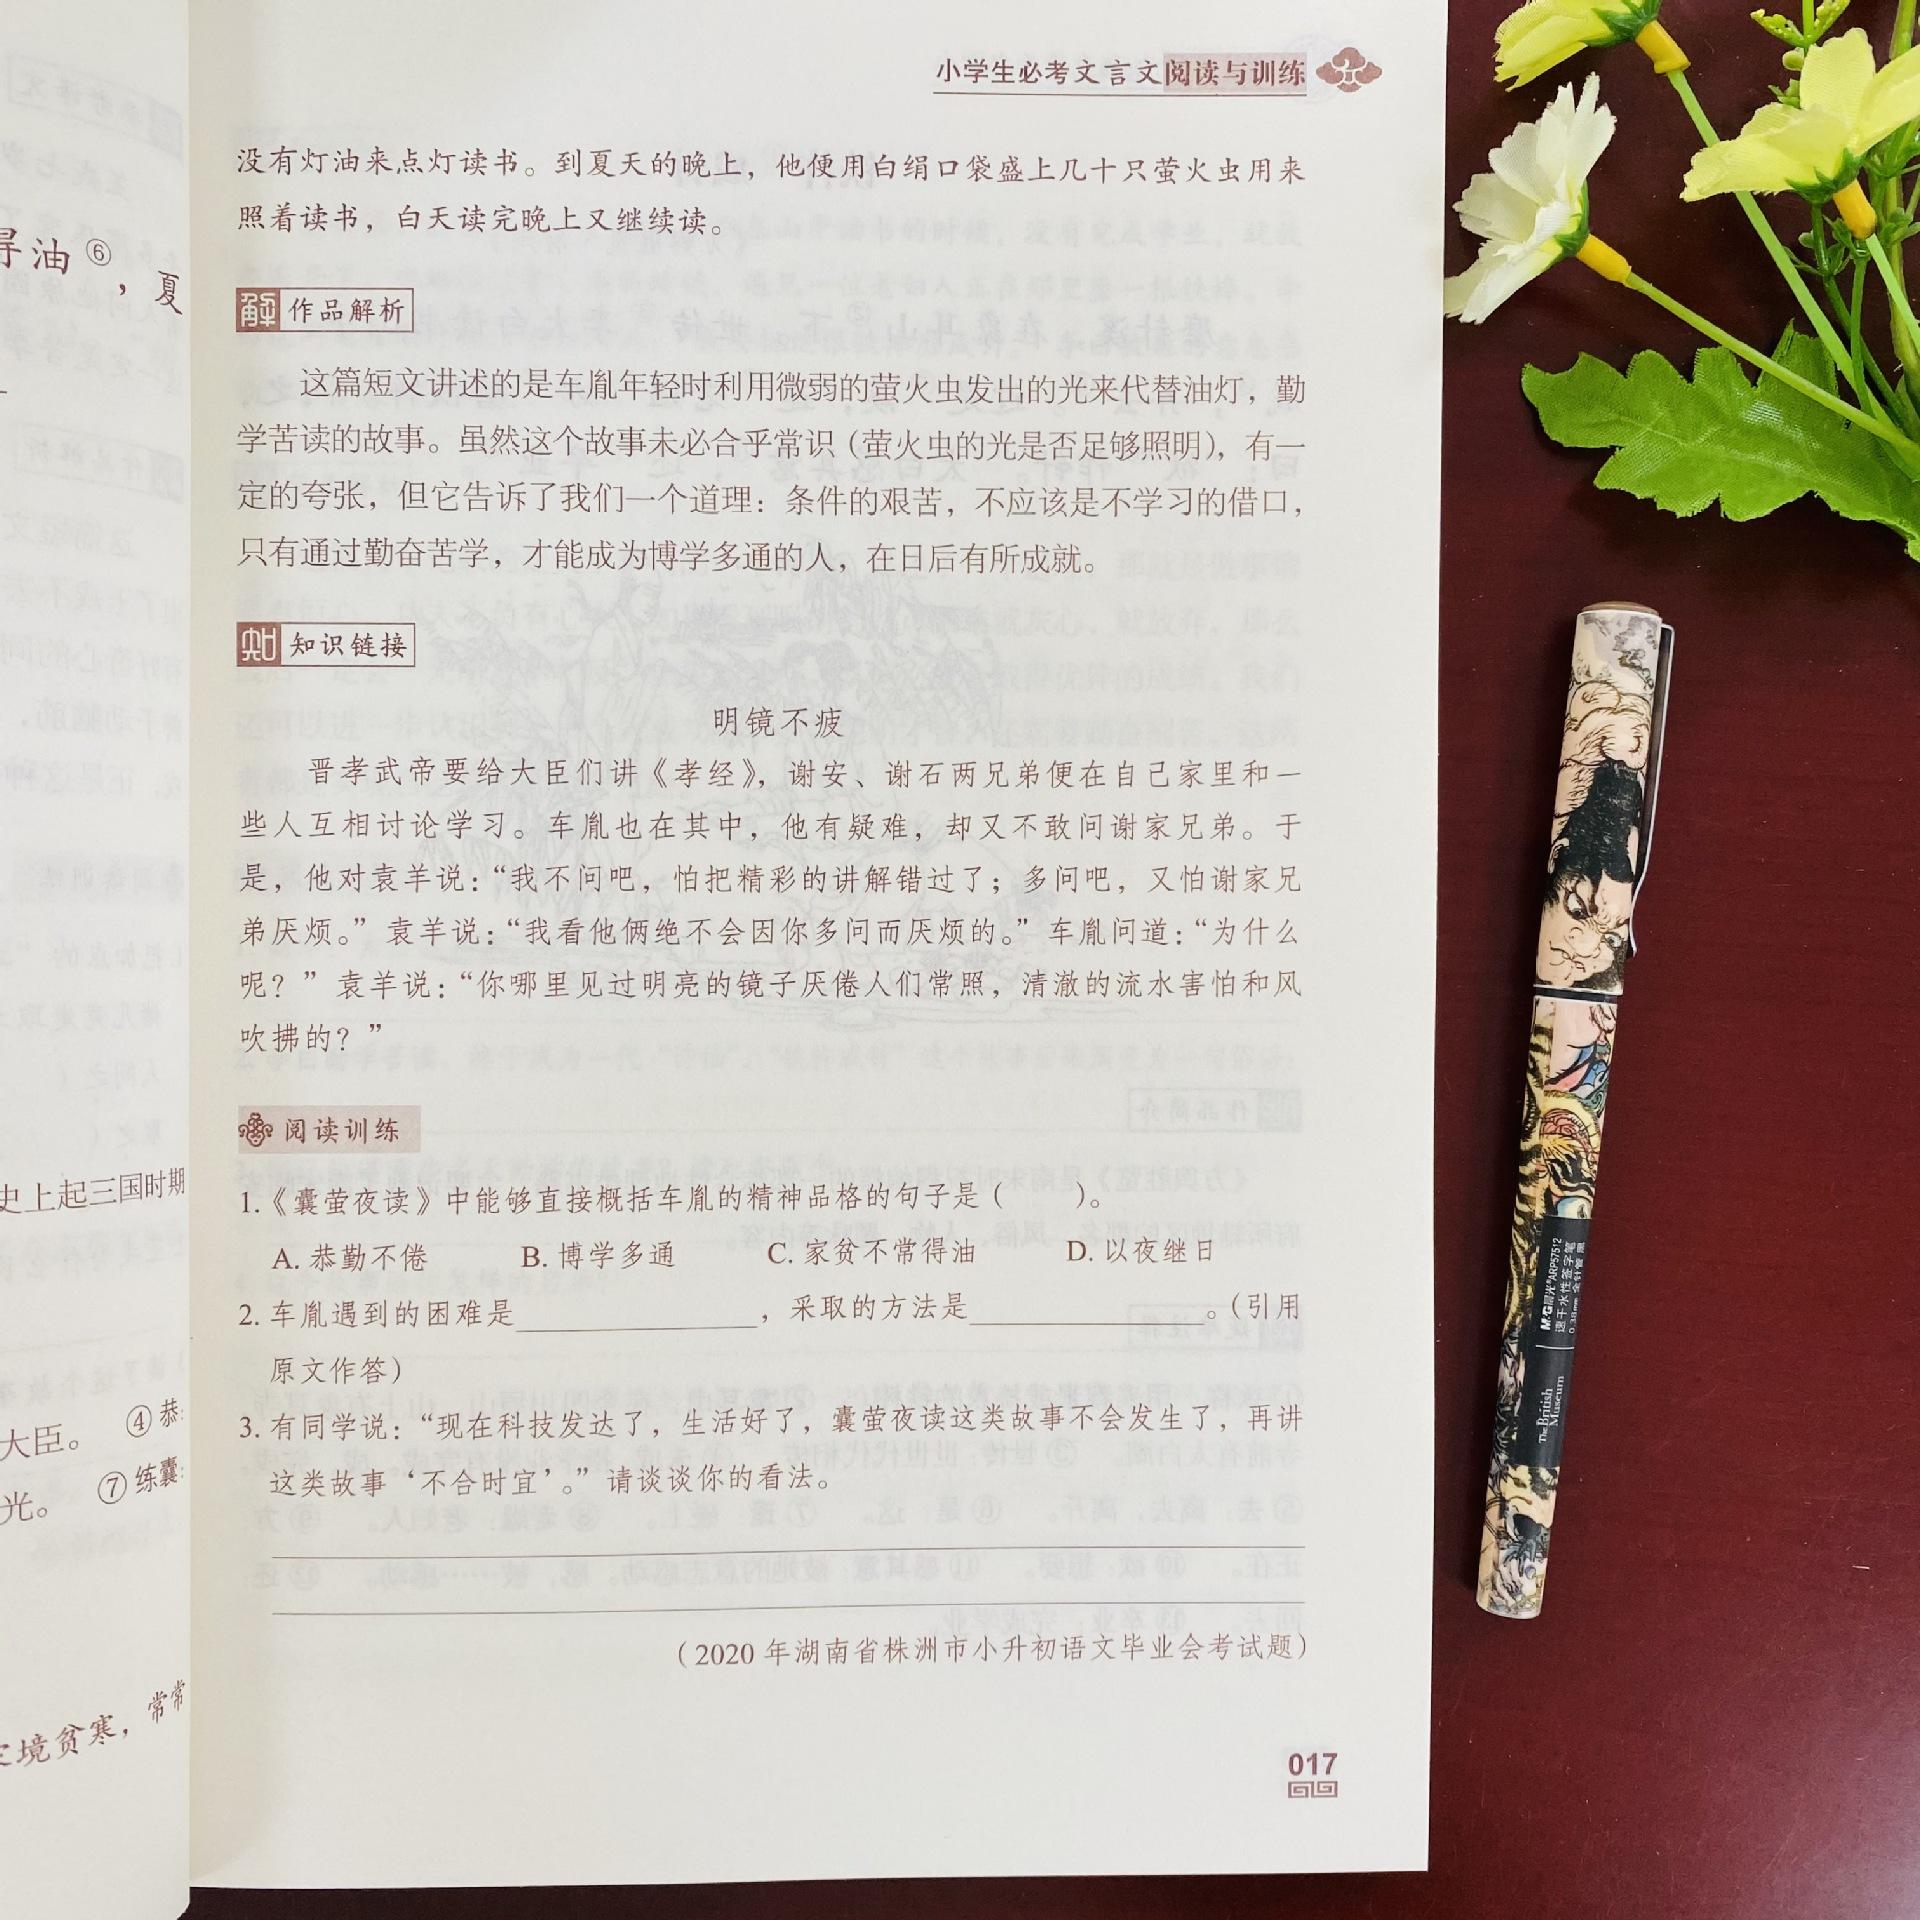 得油⑥，夏
史上起三国时期
大臣。 ④恭:
光。 ⑦练囊:
境贫寒，常常
小学生必考文言文阅读与训练
没有灯油来点灯读书。到夏天的晚上，他便用白绢口袋盛上几十只萤火虫用来
照着读书，白天读完晚上又继续读。
解 作品解析
这篇短文讲述的是车胤年轻时利用微弱的萤火虫发出的光来代替油灯，勤
学苦读的故事。虽然这个故事未必合乎常识（萤火虫的光是否足够照明），有一
定的夸张，但它告诉了我们一个道理：条件的艰苦，不应该是不学习的借口，
只有通过勤奋苦学，才能成为博学多通的人，在日后有所成就。
知 知识链接
明镜不疲
晋孝武帝要给大臣们讲《孝经》，谢安、谢石两兄弟便在自己家里和一
些人互相讨论学习。车胤也在其中，他有疑难，却又不敢问谢家兄弟。于
是，他对袁羊说：“我不问吧，怕把精彩的讲解错过了；多问吧，又怕谢家兄
弟厌烦。”袁羊说：“我看他俩绝不会因你多问而厌烦的。”车胤问道：“为什么
呢？”袁羊说：“你哪里见过明亮的镜子厌倦人们常照，清澈的流水害怕和风
吹拂的？”
阅读训练
1.《囊萤夜读》中能够直接概括车胤的精神品格的句子是（　　）。
A. 恭勤不倦 B. 博学多通 C. 家贫不常得油 D. 以夜继日
2. 车胤遇到的困难是________________，采取的方法是________________。（引用
原文作答）
3. 有同学说：“现在科技发达了，生活好了，囊萤夜读这类故事不会发生了，再讲
这类故事‘不合时宜’。”请谈谈你的看法。
（2020 年湖南省株洲市小升初语文毕业会考试题）
017
M&G晨光®ARP57512
速干水性签字笔
0.38mm 全针管 黑
The British
Museum